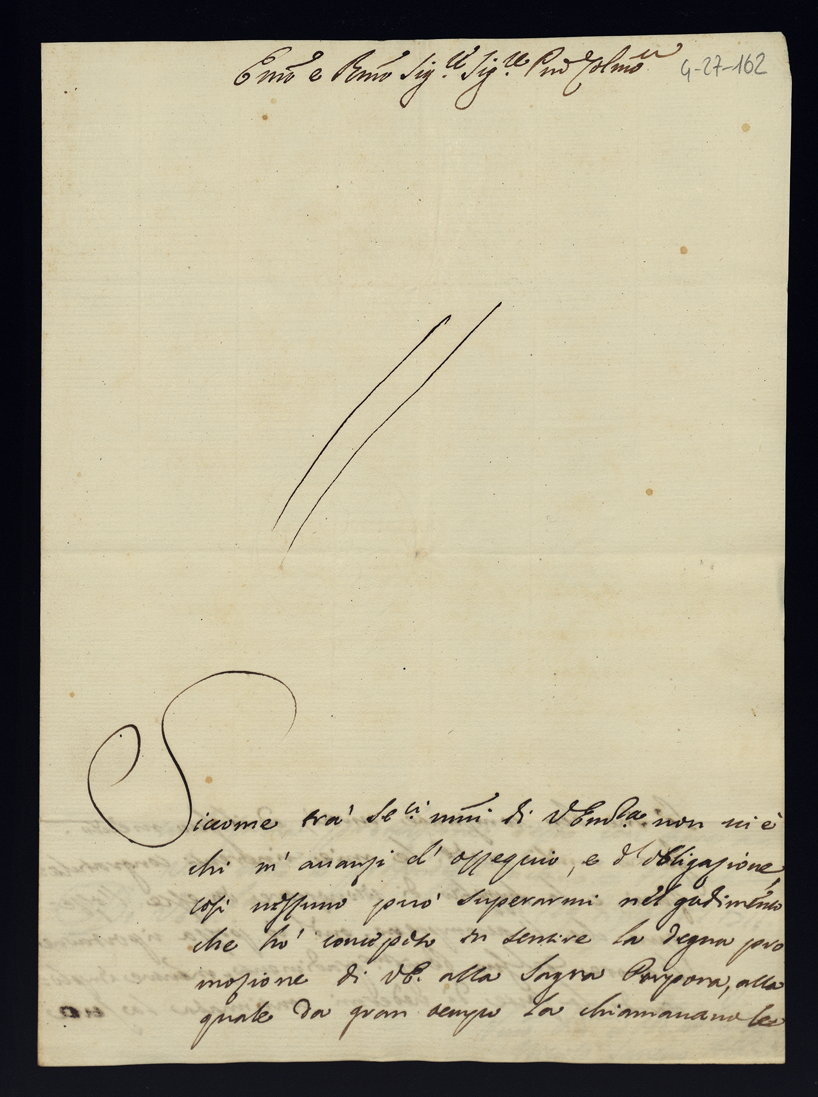 Emo e Rmo Sig.re Sig.re Pne Colmo
4-27-162
Siccome trà Se.ri umi di V Emza. non vi è
chi m' avanzi d' ossequio, e d' obligazione,
così nessuno può superarmi nel godimento
che hò concepito in sentire la degna pro
mozione di VE. alla Sagra Porpora, alla
quale da gran tempo la chiamavano le